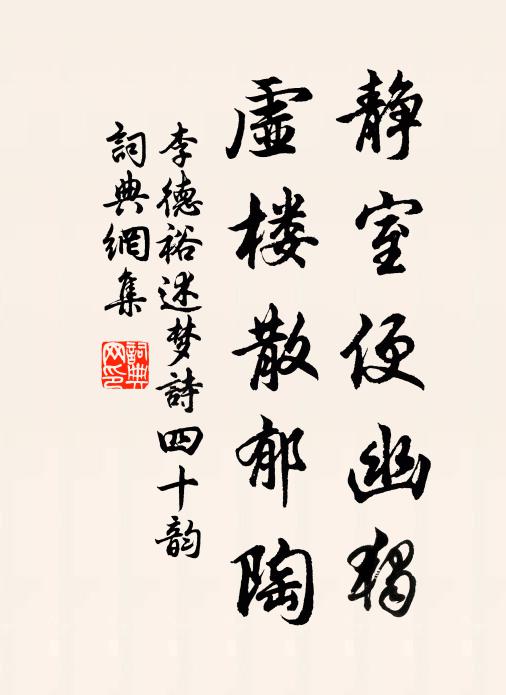 静室便幽獨
虛楼散郁陶
李德裕述梦詩四十韵
詞典網集
詞典網印